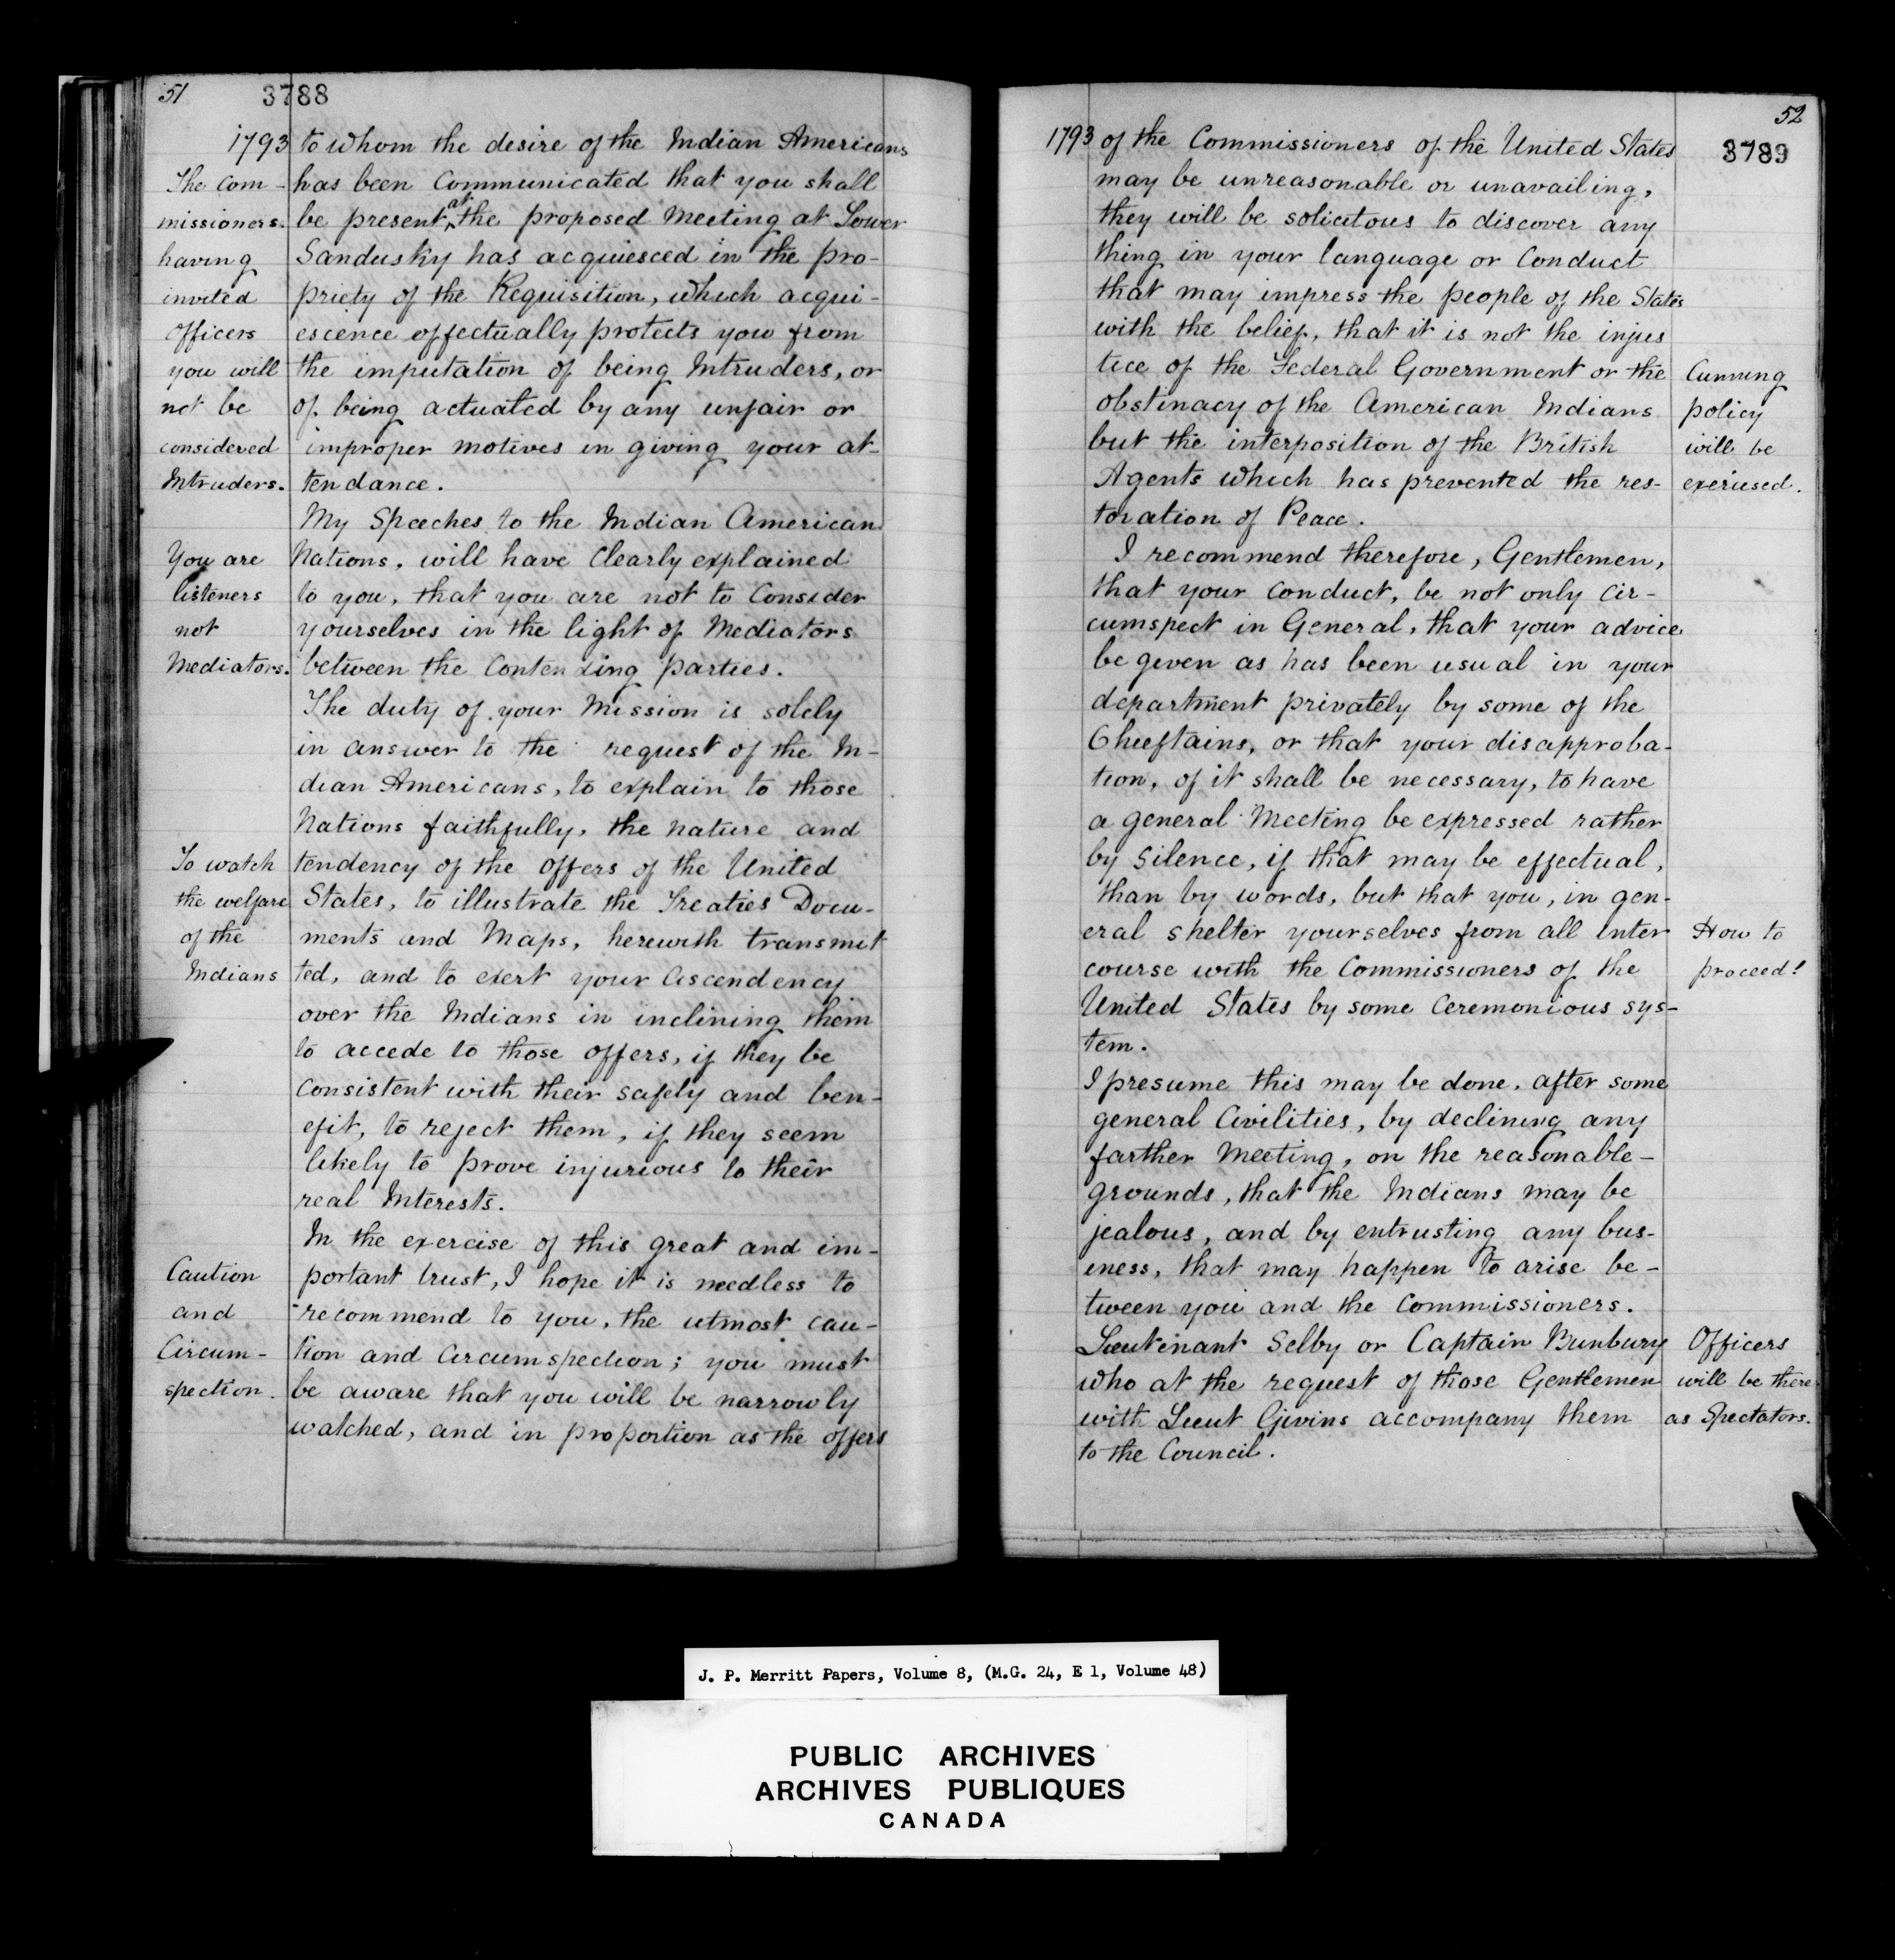 51
3788
1793
The com-
missioners.
having
invited
Officers
you will
not be
considered
Intruders.
You are
listeners
not
Mediators.
To watch
the welfare
of the
Indians
Caution
and
Circum-
spection.
to whom the desire of the Indian Americans
has been Communicated that you shall
be present at the proposed Meeting at Lower
Sandusky has acquiesced in the pro-
priety of the Requisition, which acqui-
escence effectually protects you from
the imputation of being Intruders, or
of being actuated by any unfair or
improper motives in giving your at-
tendance.
My Speeches to the Indian American
Nations, will have clearly explained
to you, that you are not to Consider
yourselves in the light of Mediators
between the Contending parties.
The duty of your Mission is solely
in answer to the request of the In-
dian Americans, to explain to those
Nations faithfully, the nature and
tendency of the offers of the United
States, to illustrate the Treaties Docu-
ments and Maps, herewith transmit
ted, and to exert your ascendency
over the Indians in inclining them
to accede to those offers, if they be
consistent with their safety and ben-
efit, to reject them, if they seem
likely to prove injurious to their
real Interests.
In the exercise of this great and im-
portant trust, I hope it is needless to
recommend to you, the utmost cau-
tion and Circumspection; you must
be aware that you will be narrowly
watched, and in proportion as the offers
52
3789
1793
of the Commissioners of the United States
may be unreasonable or unavailing,
they will be solicitous to discover any
thing in your language or Conduct
that may impress the people of the States
with the belief, that it is not the injus
tice of the Federal Government or the
obstinacy of the American Indians
but the interposition of the British
Agents which has prevented the res-
toration of Peace.
I recommend therefore, Gentlemen,
that your conduct, be not only cir-
cumspect in General, that your advice
be given as has been usual in your
department privately by some of the
Chieftains, or that your disapproba-
tion, of it shall be necessary, to have
a general Meeting be expressed rather
by silence, if that may be effectual,
than by words, but that you, in gen-
eral shelter yourselves from all inter
course with the Commissioners of the
United States by some Ceremonious sys-
tem.
I presume this may be done, after some
general Civilities, by declining any
farther Meeting, on the reasonable-
grounds, that the Indians may be
jealous, and by entrusting any bus-
iness, that may happen to arise be-
tween you and the Commissioners.
Lieutenant Selby or Captain Bunbury
who at the request of those Gentlemen
with Lieut Givins accompany them
to the Council.
Cunning
policy
will be
exercised.
How to
proceed!
Officers
will be there
as Spectators.
J. P. Merritt Papers, Volume 8, (M.G. 24, E 1, Volume 48)
PUBLIC ARCHIVES
ARCHIVES PUBLIQUES
CANADA